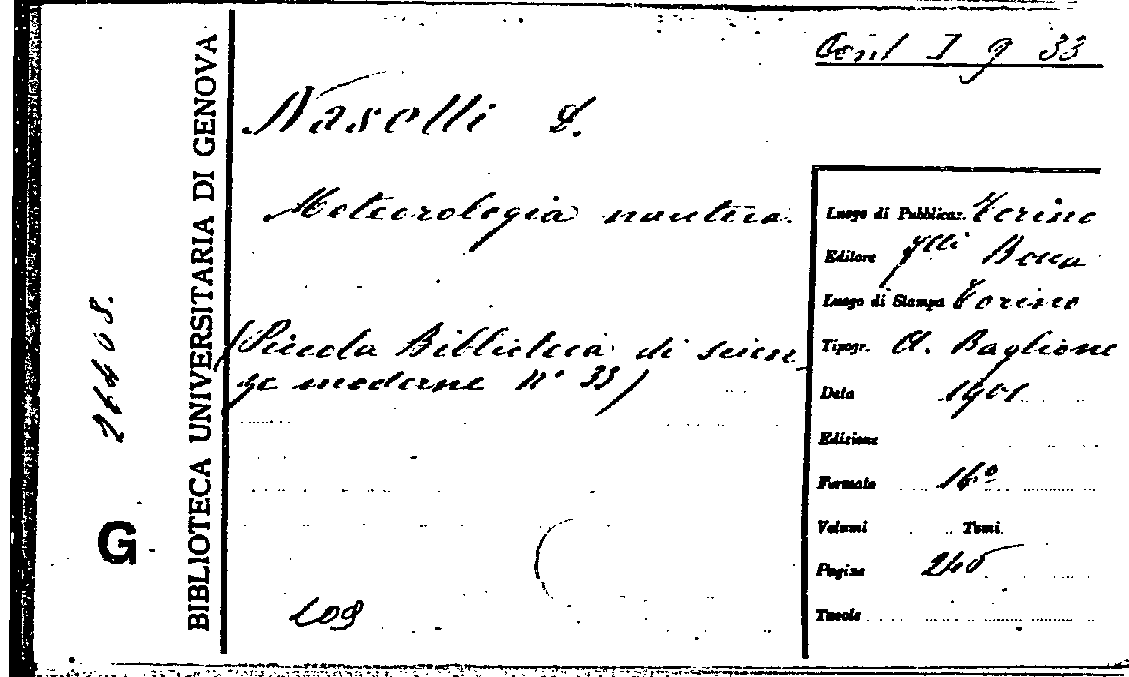 Cont I g 33
Naselli G.
Meteorologia nautica.
(Piccola Biblioteca di scien-
ze moderne nº 33)
109
Luogo di Pubblicaz. Torino
Editore flli Bocca
Luogo di Stampa Torino
Tipogr. A. Baglione
Data 1901
Edizione
Formato 16º
Volumi Tomi
Pagine 240
Tavole
BIBLIOTECA UNIVERSITARIA DI GENOVA
26408.
G